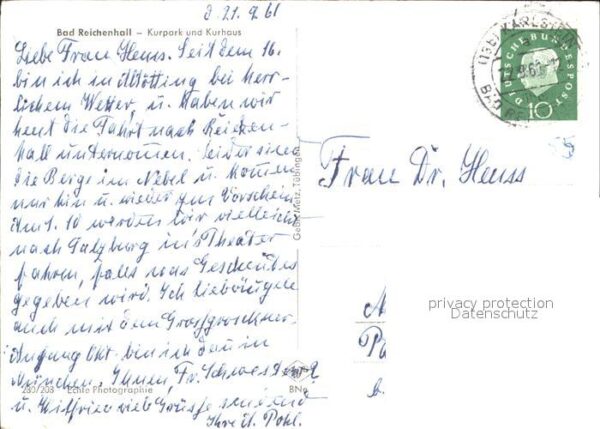 d. 21. 9. 61
Bad Reichenhall – Kurpark und Kurhaus
Liebe Frau Heuss. Seit dem 16.
bin ich in Altötting bei herr-
lichem Wetter, u. haben wir
heut die Fahrt nach Reichen-
hall unternommen. Leider sind
die Berge im Nebel u. kommen
nur hin u. wieder zum Vorschein
Am 1. 10 werden wir vielleicht
nach Salzburg in's Theater
fahren, falls was Gescheites
gegeben wird. Ich liebäugle
auch mit dem Großglockner.
Anfang Okt. bin ich dann in
München. Ihnen Fr. Schwester
u. Wilfried viel Grüsse
Ihre A. Pohl.
280/208 Echte Photographie
Gebr. Metz, Tübingen
DEUTSCHE BUNDESPOST
10
Frau Dr. Heuss
privacy protection
Datenschutz